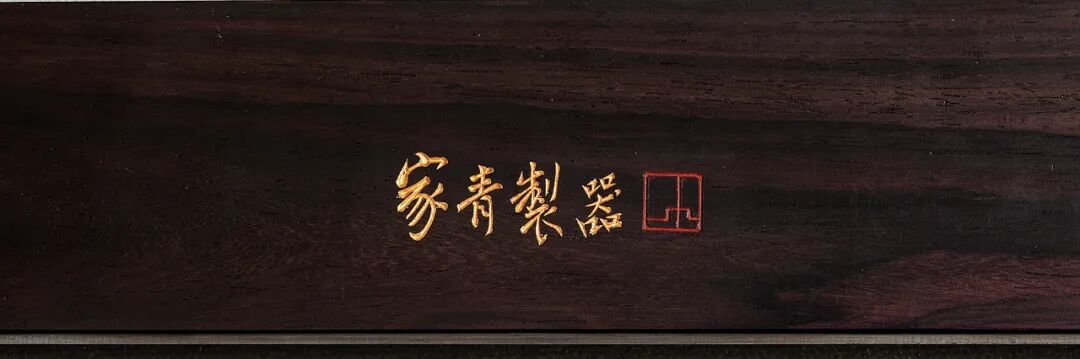 家青製器